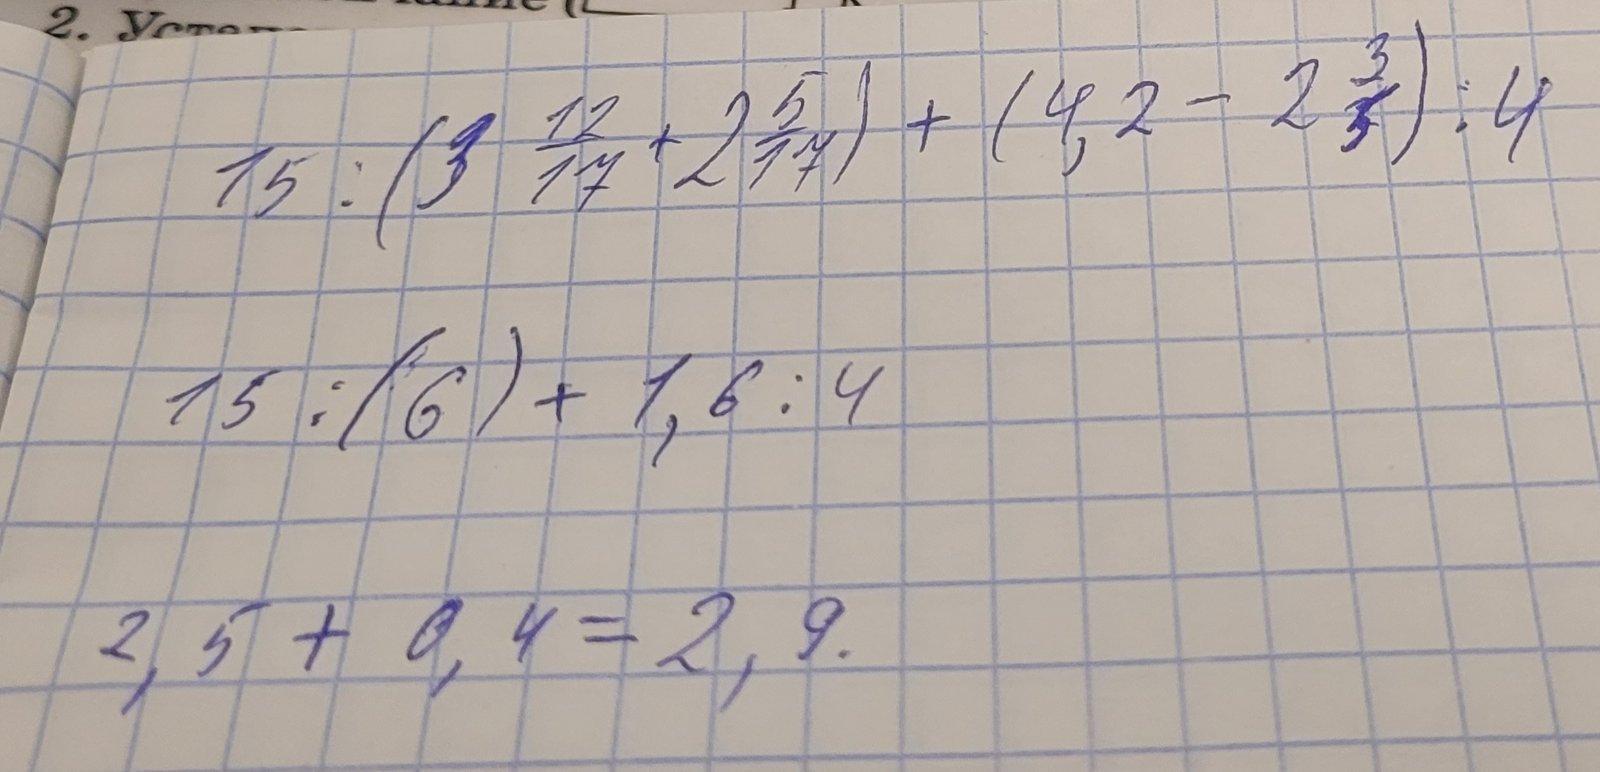 2. Устано
15 : (3 12/17 + 2 5/17) + (4,2 - 2 3/5) : 4
15 : (6) + 1,6 : 4
2,5 + 0,4 = 2,9.